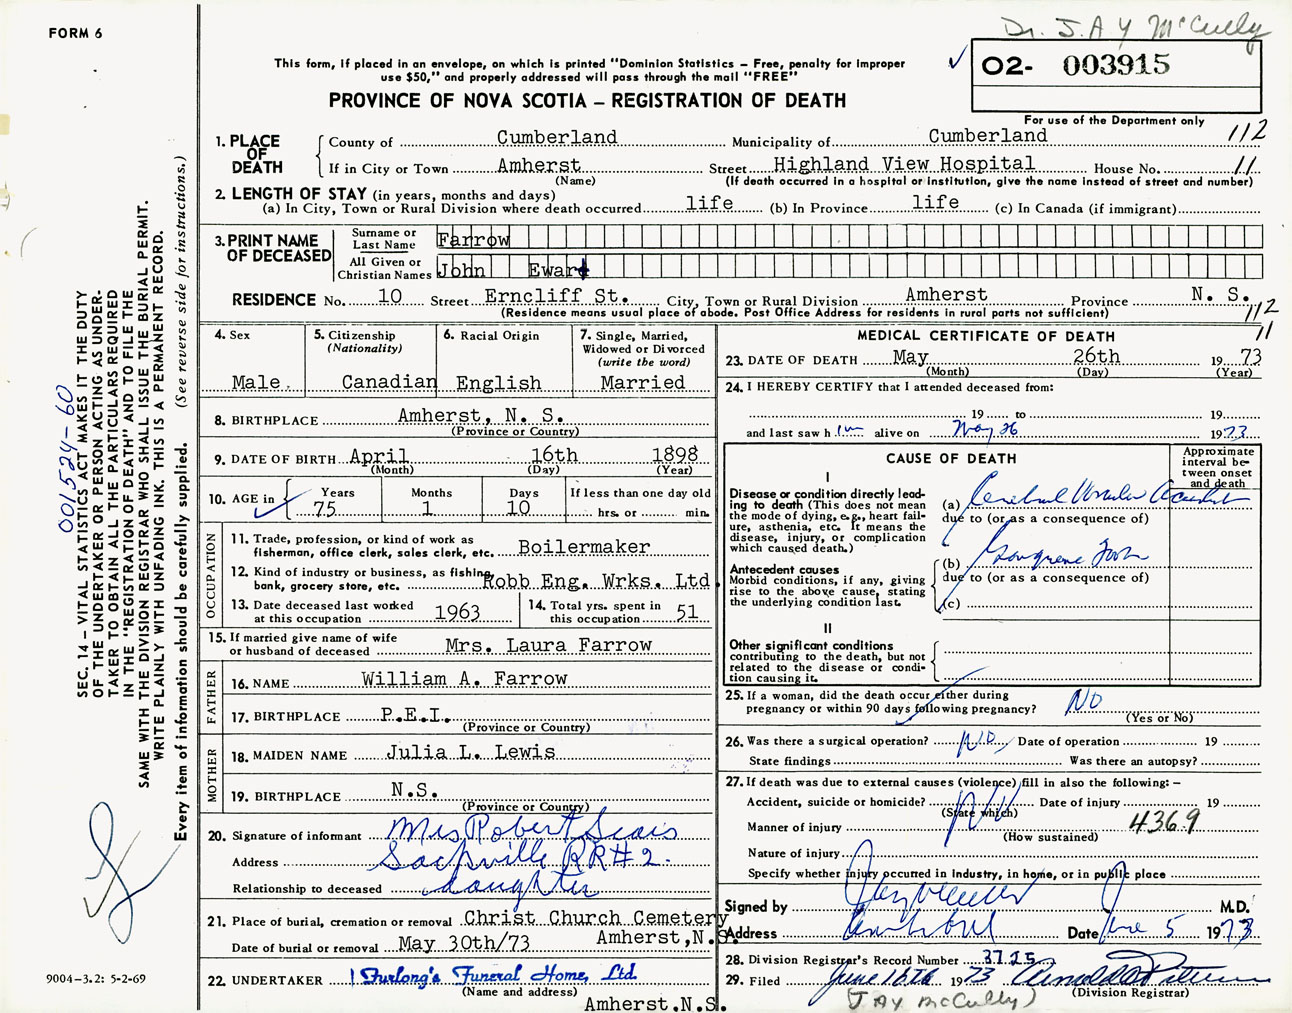 FORM 6
Dr. J.A Y McCully
This form, if placed in an envelope, on which is printed "Dominion Statistics – Free, penalty for improper
use $50," and properly addressed will pass through the mail "FREE"
PROVINCE OF NOVA SCOTIA – REGISTRATION OF DEATH
✓ 02- 003915
For use of the Department only
1. PLACE OF DEATH
County of Cumberland Municipality of Cumberland 112
If in City or Town Amherst Street Highland View Hospital House No. 11
(Name) (If death occurred in a hospital or institution, give the name instead of street and number)
2. LENGTH OF STAY (in years, months and days)
(a) In City, Town or Rural Division where death occurred life (b) In Province life (c) In Canada (if immigrant)
3. PRINT NAME OF DECEASED
Surname or Last Name Farrow
All Given or Christian Names John Eward
RESIDENCE No. 10 Street Erncliff St. City, Town or Rural Division Amherst Province N. S.
(Residence means usual place of abode. Post Office Address for residents in rural parts not sufficient) 112
11
4. Sex
Male
5. Citizenship
(Nationality)
Canadian
6. Racial Origin
English
7. Single, Married,
Widowed or Divorced
(write the word)
Married
8. BIRTHPLACE Amherst, N. S.
(Province or Country)
9. DATE OF BIRTH April 16th 1898
(Month) (Day) (Year)
10. AGE in Years Months Days If less than one day old
75 1 10 hrs. or min.
OCCUPATION
11. Trade, profession, or kind of work as
fisherman, office clerk, sales clerk, etc. Boilermaker
12. Kind of industry or business, as fishing,
bank, grocery store, etc. Robb Eng. Wrks. Ltd.
13. Date deceased last worked
at this occupation 1963
14. Total yrs. spent in
this occupation 51
15. If married give name of wife
or husband of deceased Mrs. Laura Farrow
FATHER
16. NAME William A. Farrow
17. BIRTHPLACE P.E.I.
(Province or Country)
MOTHER
18. MAIDEN NAME Julia L. Lewis
19. BIRTHPLACE N.S.
(Province or Country)
20. Signature of informant Mrs Robert Sears
Address Sackville RR#2.
Relationship to deceased daughter
21. Place of burial, cremation or removal Christ Church Cemetery
Date of burial or removal May 30th/73 Amherst,N.S.
22. UNDERTAKER Furlong's Funeral Home, Ltd.
(Name and address)
Amherst.N.S.
MEDICAL CERTIFICATE OF DEATH
23. DATE OF DEATH May 26th 1973
(Month) (Day) (Year)
24. I HEREBY CERTIFY that I attended deceased from:
19 to 19
and last saw h im alive on May 26 1973
CAUSE OF DEATH
Approximate
interval be-
tween onset
and death
I
Disease or condition directly lead-
ing to death (This does not mean
the mode of dying, e.g., heart fail-
ure, asthenia, etc. It means the
disease, injury, or complication
which caused death.)
(a) Cerebral Vascular Accident
due to (or as a consequence of)
Antecedent causes
Morbid conditions, if any, giving
rise to the above cause, stating
the underlying condition last.
(b) Gangrene Foot
due to (or as a consequence of)
(c)
II
Other significant conditions
contributing to the death, but not
related to the disease or condi-
tion causing it.
25. If a woman, did the death occur either during
pregnancy or within 90 days following pregnancy? No
(Yes or No)
26. Was there a surgical operation? No Date of operation 19
State findings Was there an autopsy?
27. If death was due to external causes (violence) fill in also the following: –
Accident, suicide or homicide? Date of injury 19
(State which)
Manner of injury 436.9
(How sustained)
Nature of injury
Specify whether injury occurred in industry, in home, or in public place
Signed by M.D.
Address Amherst Date June 5 1973
28. Division Registrar's Record Number 3725
29. Filed June 15th 1973
(Division Registrar)
(JAY McCully)
SEC. 14 – VITAL STATISTICS ACT MAKES IT THE DUTY
OF THE UNDERTAKER OR PERSON ACTING AS UNDER-
TAKER TO OBTAIN ALL THE PARTICULARS REQUIRED
IN THE "REGISTRATION OF DEATH" AND TO FILE THE
SAME WITH THE DIVISION REGISTRAR WHO SHALL ISSUE THE BURIAL PERMIT.
WRITE PLAINLY WITH UNFADING INK. THIS IS A PERMANENT RECORD.
Every item of information should be carefully supplied. (See reverse side for instructions.)
001524-60
9004-3.2: 5-2-69